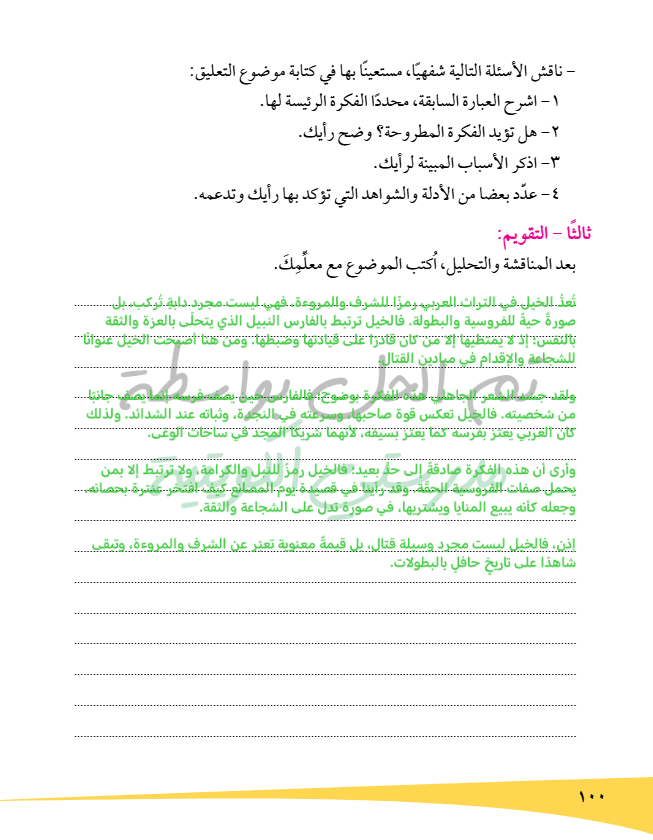 – ناقش الأسئلة التالية شفهيًا، مستعينًا بها في كتابة موضوع التعليق:
١– اشرح العبارة السابقة، محددًا الفكرة الرئيسة لها.
٢– هل تؤيد الفكرة المطروحة؟ وضح رأيك.
٣– اذكر الأسباب المبينة لرأيك.
٤– عدّد بعضا من الأدلة والشواهد التي تؤكد بها رأيك وتدعمه.
ثالثًا – التقويم:
بعد المناقشة والتحليل، اُكتب الموضوع مع معلِّمِكَ.
تُعدُّ الخيل في التراث العربي رمزًا للشرف والمروءة، فهي ليست مجرد دابةٍ تُركب، بل
صورةٌ حيةٌ للفروسية والبطولة. فالخيل ترتبط بالفارس النبيل الذي يتحلّى بالعزة والثقة
بالنفس؛ إذ لا يمتطيها إلا من كان قادرًا على قيادتها وضبطها. ومن هنا أصبحت الخيل عنوانًا
للشجاعة والإقدام في ميادين القتال.
ولقد جسّد الشعر الجاهلي هذه الفكرة بوضوح؛ فالفارس حين يصف فرسه إنما يصف جانبًا
من شخصيته. فالخيل تعكس قوة صاحبها، وسرعته في النجدة، وثباته عند الشدائد. ولذلك
كان العربي يعتز بفرسه كما يعتز بسيفه، لأنهما شريكا المجد في ساحات الوغى.
وأرى أن هذه الفكرة صادقةٌ إلى حدٍّ بعيد؛ فالخيل رمزٌ للنبل والكرامة، ولا ترتبط إلا بمن
يحمل صفات الفروسية الحقّة. وقد رأينا في قصيدة يوم المصانع كيف افتخر عنترة بحصانه،
وجعله كأنه يبيع المنايا ويشتريها، في صورة تدل على الشجاعة والثقة.
إذن، فالخيل ليست مجرد وسيلة قتال، بل قيمةٌ معنوية تعبّر عن الشرف والمروءة، وتبقى
شاهدًا على تاريخٍ حافلٍ بالبطولات.
تم الحل بواسطة
مدرستي الكويتية
١٠٠